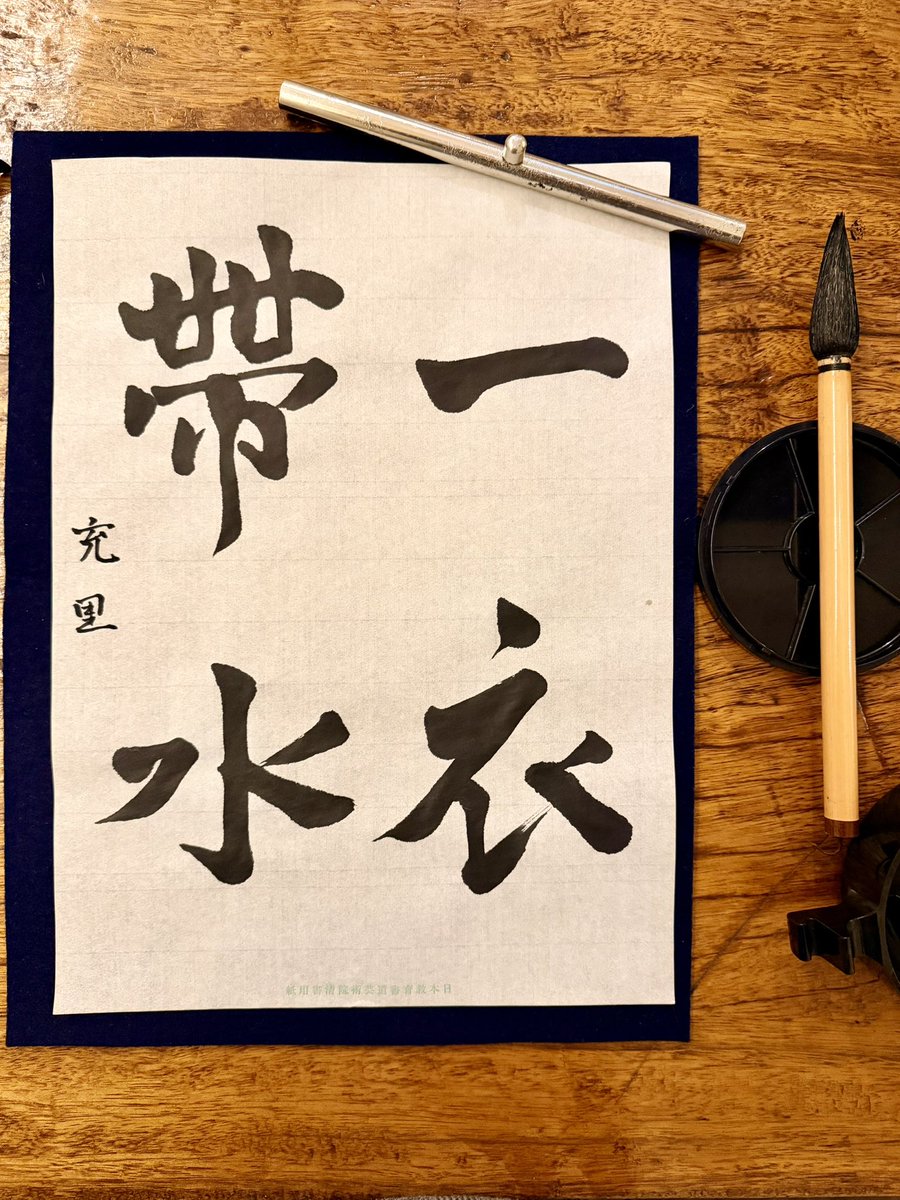 一衣
帶水
充里
日本教育書道芸術院清書用紙